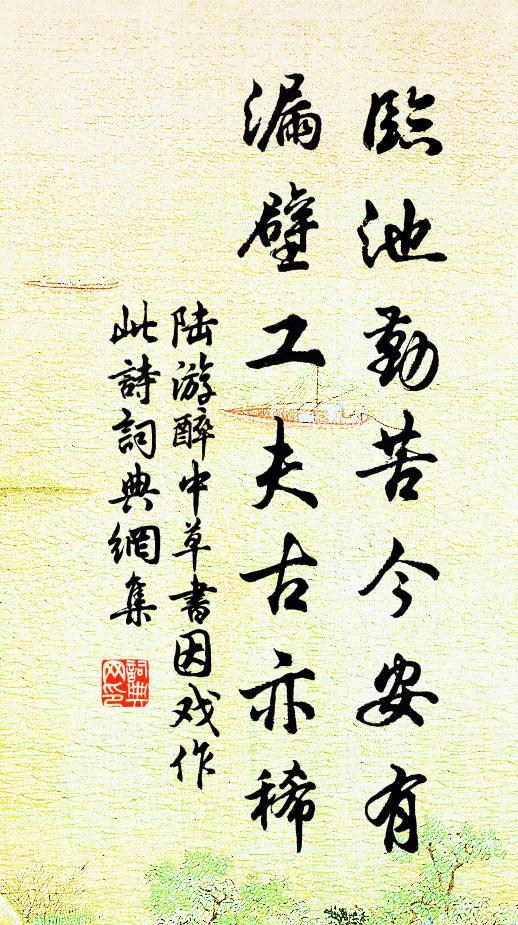 臨池勤苦今安有
漏壁工夫古亦稀
陆游醉中草書因戏作
此詩詞典網集
詞典
网印